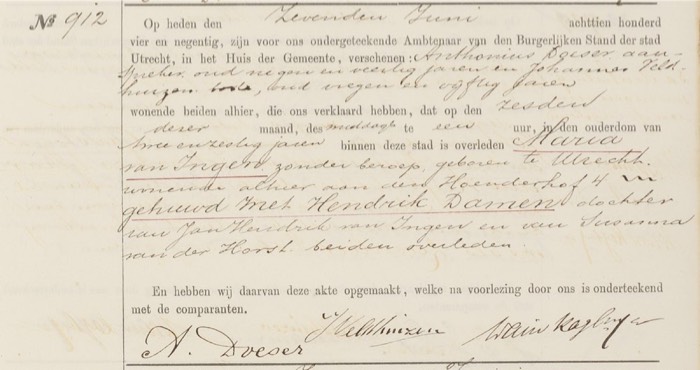 No 912
Op heden den zevenden Juni achttien honderd
vier en negentig, zijn voor ons ondergeteekende Ambtenaar van den Burgerlijken Stand der stad
Utrecht, in het Huis der Gemeente, verschenen: Anthonius Doeser aan-
spreker, oud negen en veertig jaren en Johannes Veld-
huizen, oud en vijftig jaren
wonende beiden alhier, die ons verklaard hebben, dat op den zesden
dezer maand, des middags te een uur, in den ouderdom van
twee en zestig jaren binnen deze stad is overleden Maria
van Ingen zonder beroep, geboren te Utrecht.
wonende alhier aan den Hoenderhof 4
gehuwd met Hendrik Damen, dochter
van Jan Hendrik van Ingen en van Susanna
van der Horst beiden overleden
En hebben wij daarvan deze akte opgemaakt, welke na voorlezing door ons is onderteekend
met de comparanten.
A. Doeser J Veldhuizen